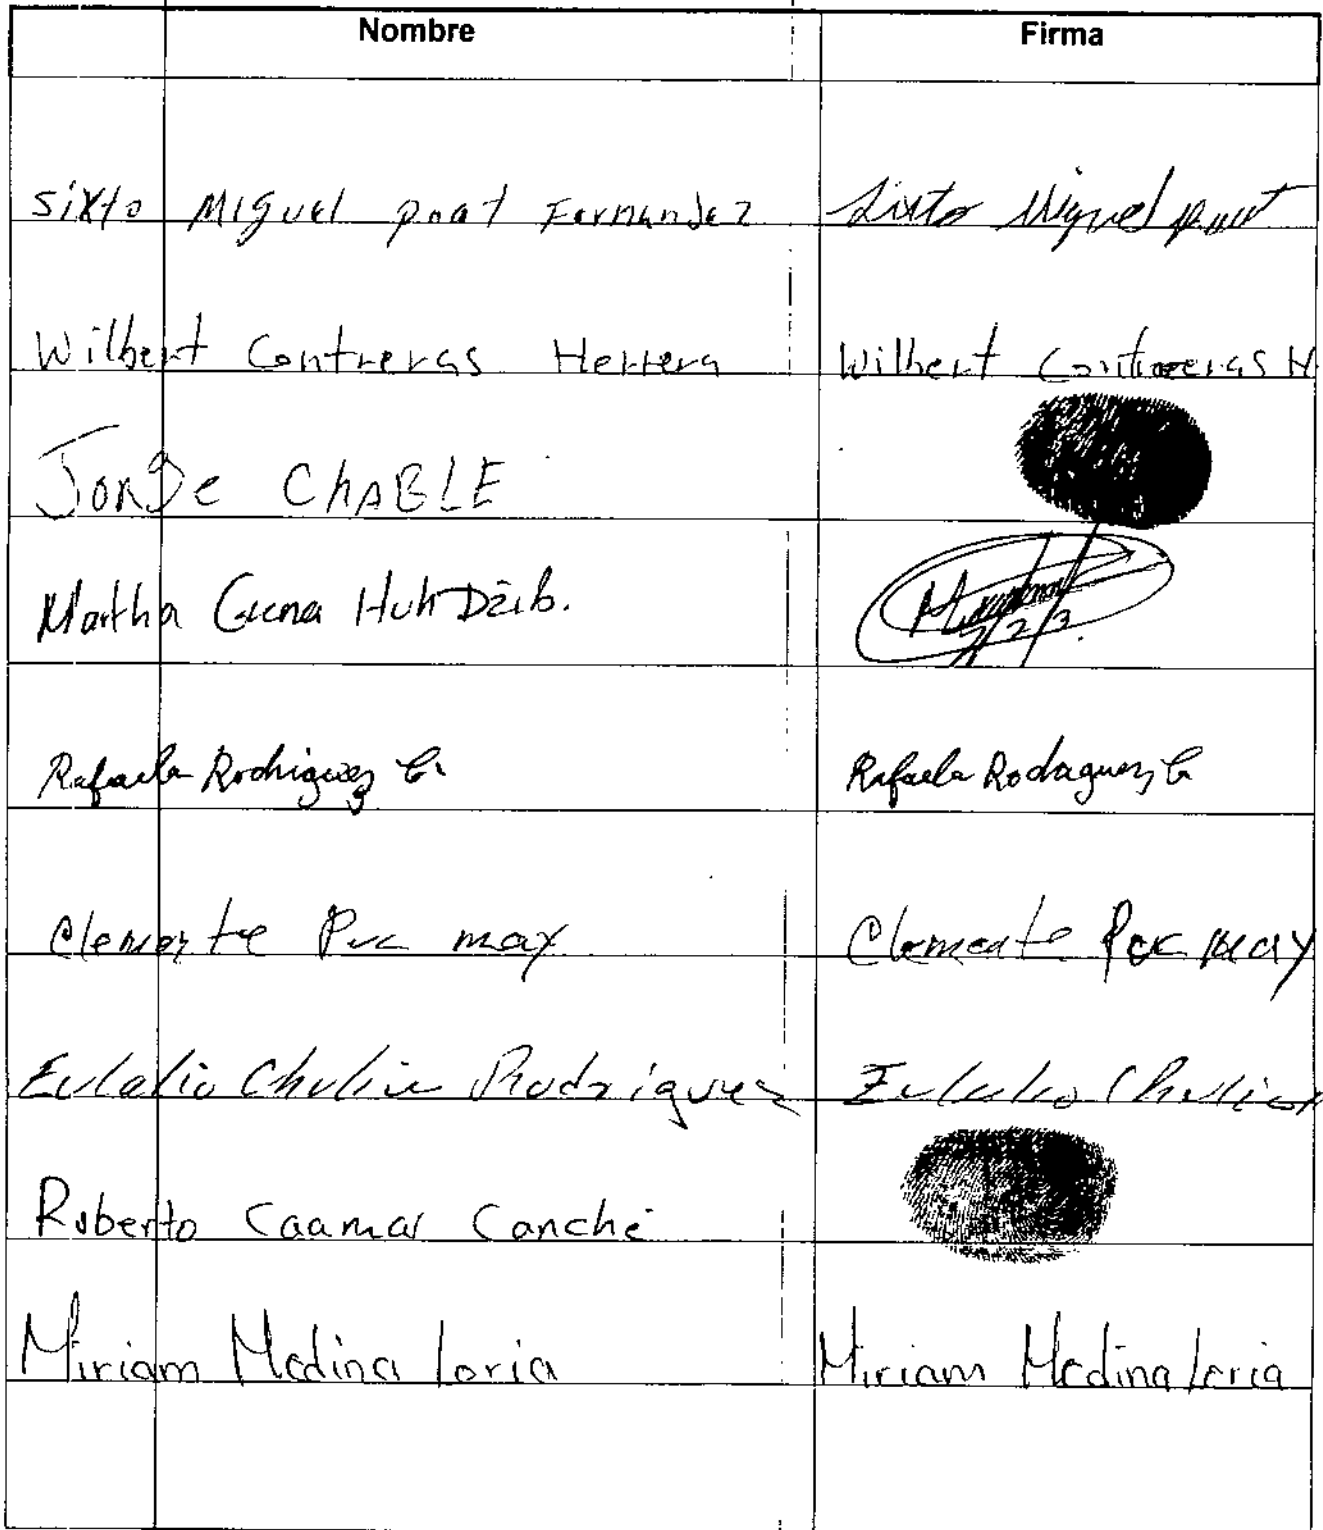 Nombre Firma
sixto Miguel poot Fernandez Sixto Miguel poot
Wilbert Contreras Herrera Wilbert Contreras H
JORge ChABLE
Martha Huh Dzib.
Rafaela Rodriguez C. Rafaela Rodaguez C
Clemente Puc may Clemente Puc may
Eulalio Chulin Rodriguez Eulalio Chulin
Roberto Caamal Canché
Miriam Medina Loria Miriam Medina Loria